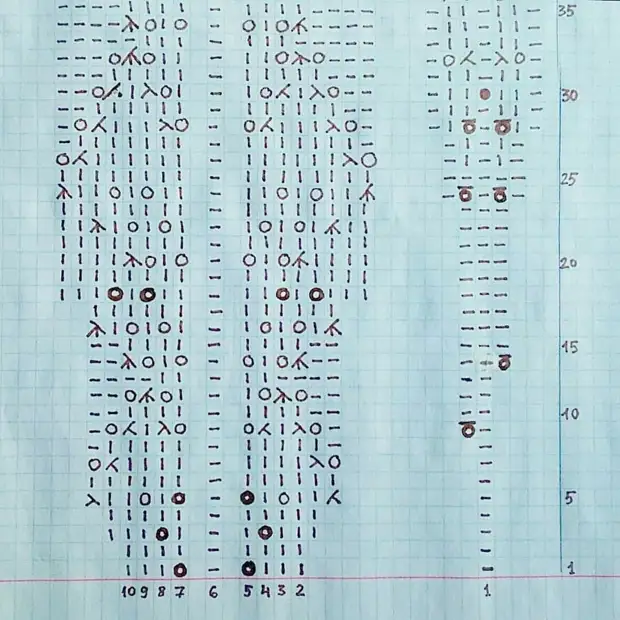 35
30
25
20
15
10
5
1
10 9 8 7 6 5 4 3 2 1